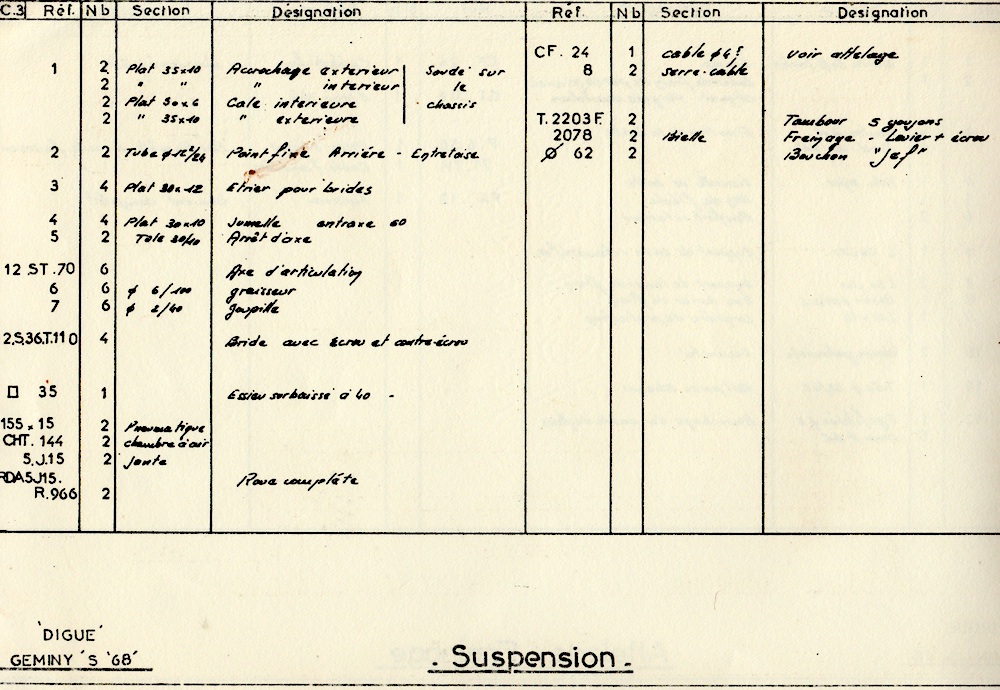 C.3 Réf. Nb Section Désignation
1 2 Plat 35x10 Accrochage exterieur Soudé sur
2 " " " interieur le
2 Plat 30x6 Cale interieure chassis
2 " 35x10 " exterieure
2 2 Tube Point fixe Arriére - Entretoise
3 4 Plat 30x12 Etrier pour brides
4 4 Plat 30x10 Jumelle entraxe 60
5 2 Tole 30/10 Arrêt d'axe
12 ST.70 6 Axe d'articulation
6 6 ϕ 6/100 graisseur
7 6 ϕ 2/40 goupille
2,S,36,T.110 4 Bride avec écrou et contre-écrou
□ 35 1 Essieu surbaissé à 40 -
155 x 15 2 Pneumatique
CHT. 144 2 chambre à air
5.J.15 2 jante
RDA5J15. Roue complète
R.966 2
Réf. Nb Section Désignation
CF. 24 1 cable voir attelage
8 2 serre-cable
T.2203F. 2 Tambour 5 goujons
2078 2 Bielle Freinage - Levier + écrou
Ø 62 2 Bouchon "Jaf"
'DIGUE'
GEMINY 'S '68'
- Suspension -